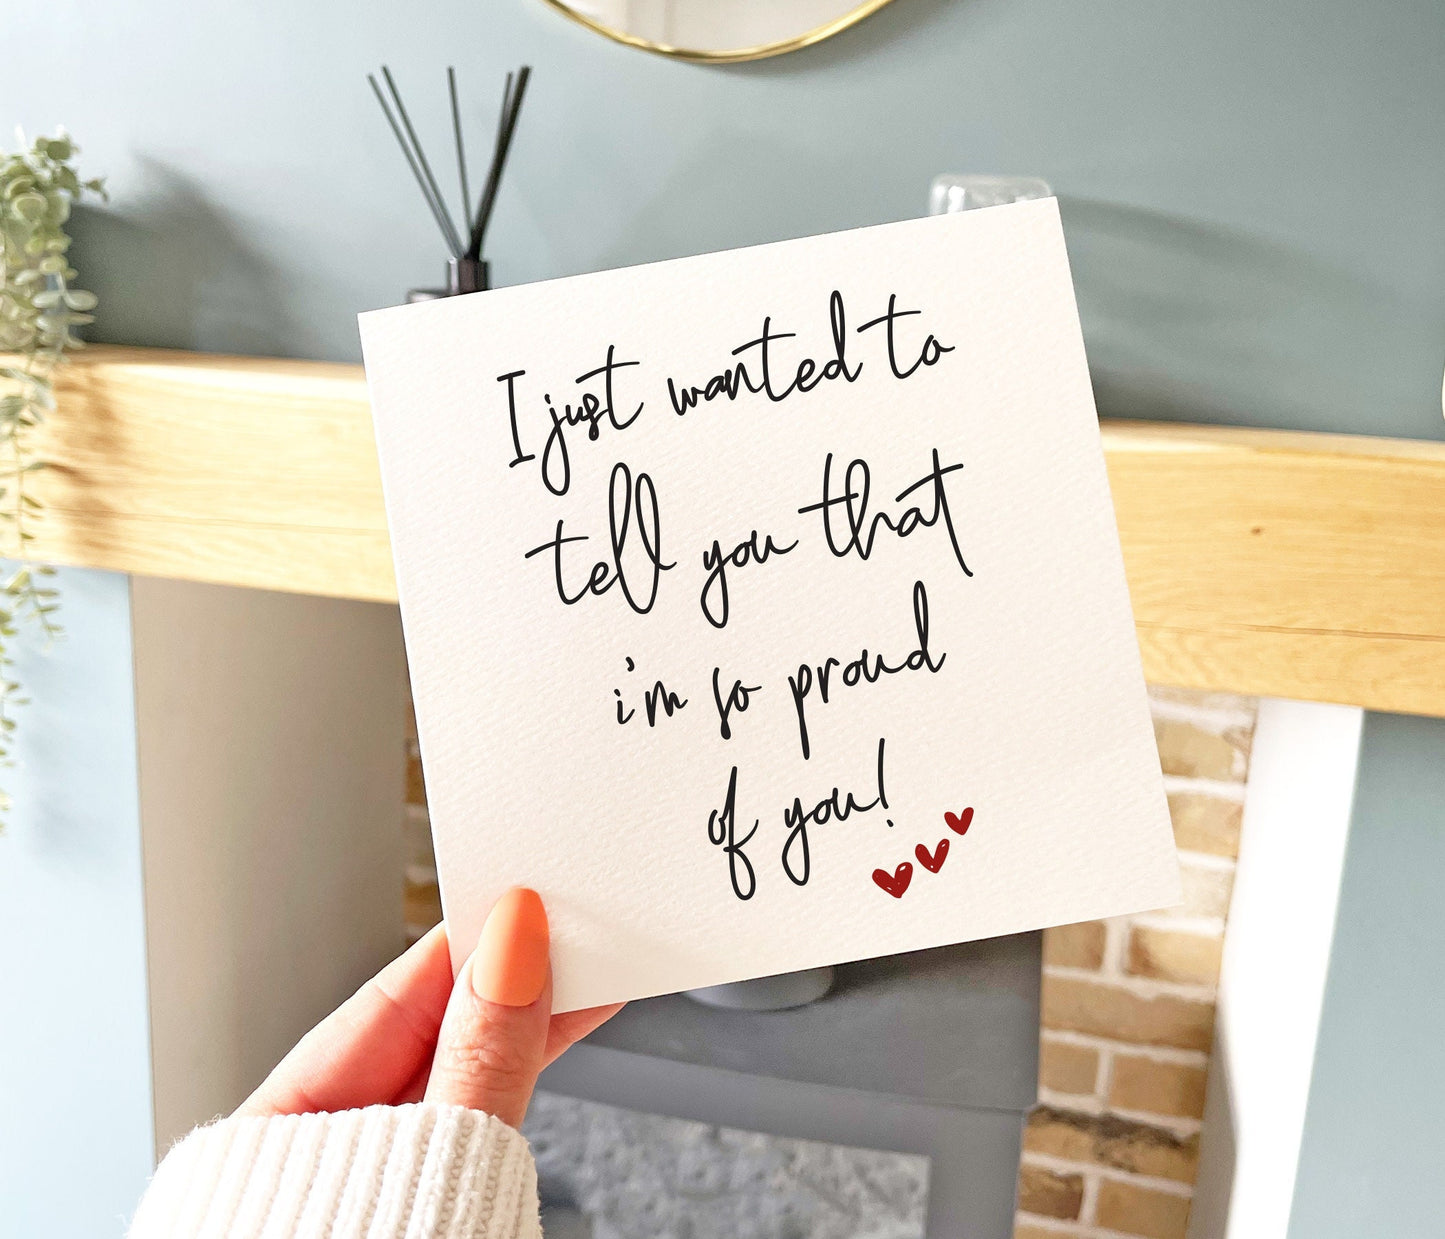 I just wanted to
tell you that
i'm so proud
of you!